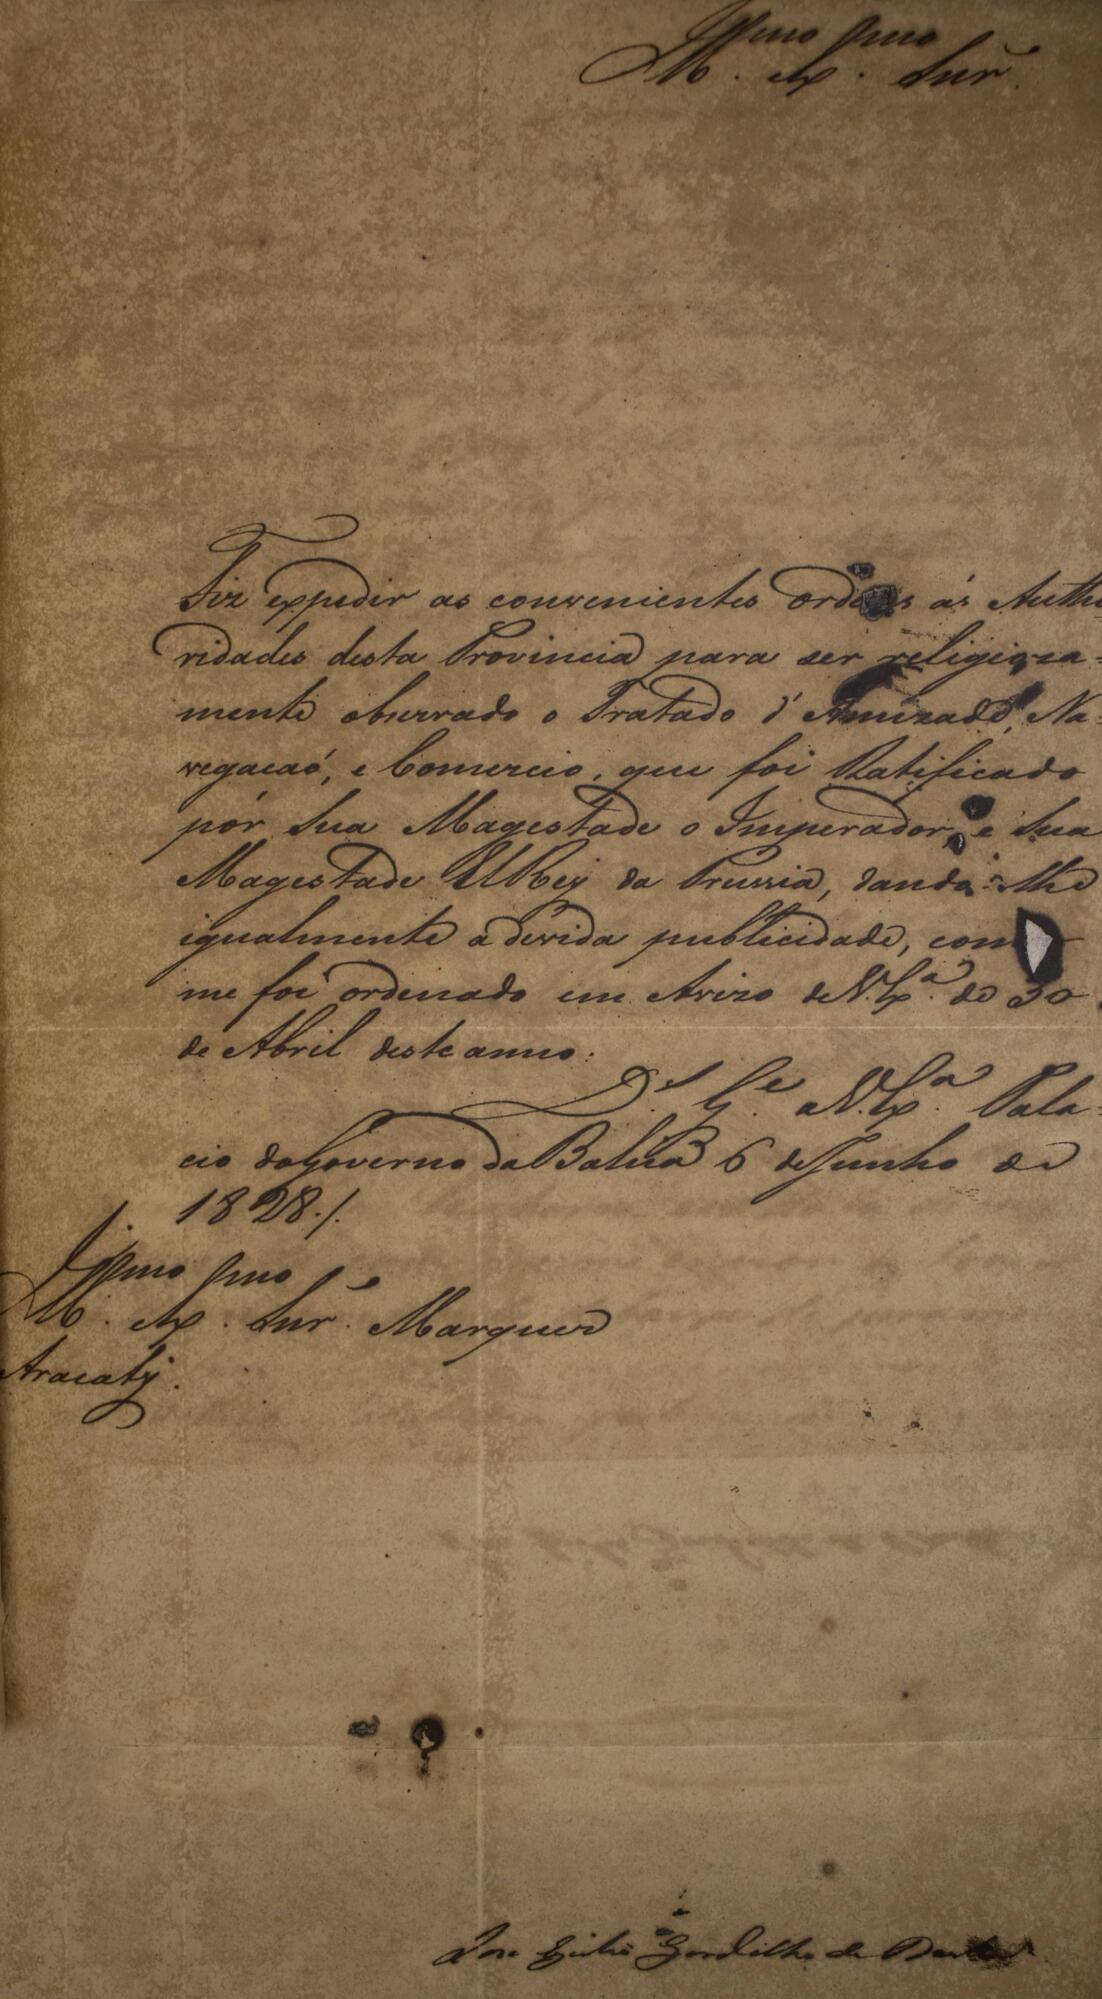 Illmo Exmo Snr.
Fiz expedir as convenientes ordens ás Autho
ridades desta Provincia para ser religioza-
mente observado o Tratado d'Amizade, Na-
vegacaõ, e Comercio, que foi Ratificado
pór Sua Magestade o Imperador, e Sua
Magestade ElRey da Prussia, dando-lhe
igualmente a devida publicidade, como
me foi ordenado em Avizo de V. Exa. de 30
de Abril deste anno.
Ds. Ge. a V. Exa. Pala-
cio do Governo da Bahia 6 de Junho de
1828./.
Illmo Exmo Snr. Marquez
Aracaty.
Jose Egidio Gordilho de Barbuda